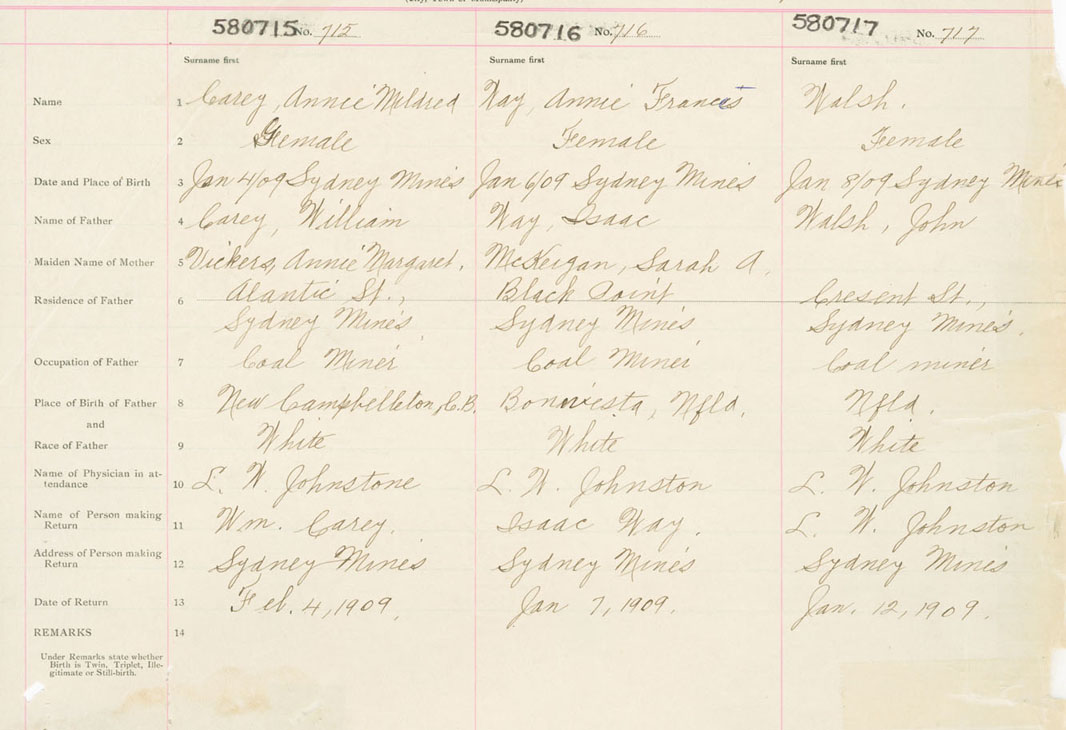 (City, Town or Municipality)
580715 No. 715 580716 No. 716 580717 No. 717
Surname first Surname first Surname first
Name 1 Carey, Annie Mildred Way, Annie Francis Walsh.
Sex 2 Female Female Female
Date and Place of Birth 3 Jan 4/09 Sydney Mines Jan 6/09 Sydney Mines Jan 8/09 Sydney Mines
Name of Father 4 Carey, William Way, Isaac Walsh, John
Maiden Name of Mother 5 Vickers, Annie Margaret. McKeigan, Sarah A.
Residence of Father 6 Alantic St., Black Point Cresent St.,
Sydney Mines Sydney Mines Sydney Mines.
Occupation of Father 7 Coal Miner Coal Miner Coal miner
Place of Birth of Father 8 New Campbelleton, C.B. Bonivesta, Nfld. Nfld.
and
Race of Father 9 White White White
Name of Physician in at-
tendance 10 L. W. Johnstone L. W. Johnston L. W. Johnston
Name of Person making
Return 11 Wm. Carey. Isaac Way. L. W. Johnston
Address of Person making
Return 12 Sydney Mines Sydney Mines Sydney Mines
Date of Return 13 Feb. 4, 1909. Jan 7, 1909. Jan. 12, 1909.
REMARKS 14
Under Remarks state whether
Birth is Twin, Triplet, Ille-
gitimate or Still-birth.